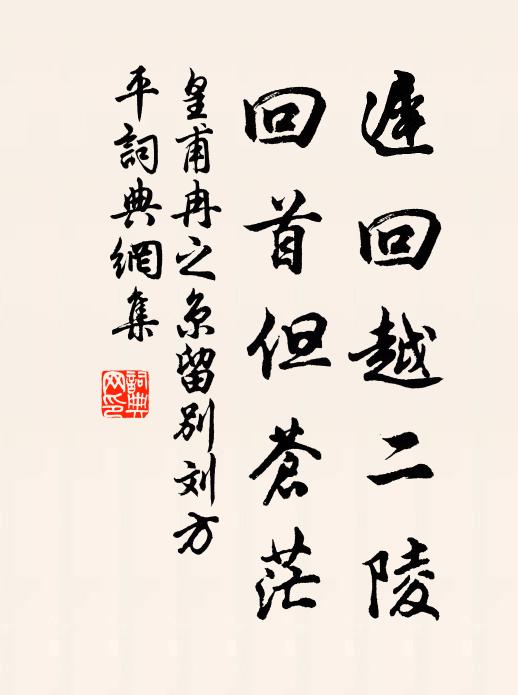 遲回越二陵
回首但蒼茫
皇甫冉之京留別刘方
平詞典網集
詞典
网印